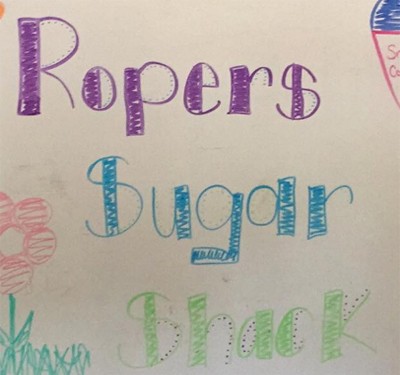 Ropers
Sugar
Shack